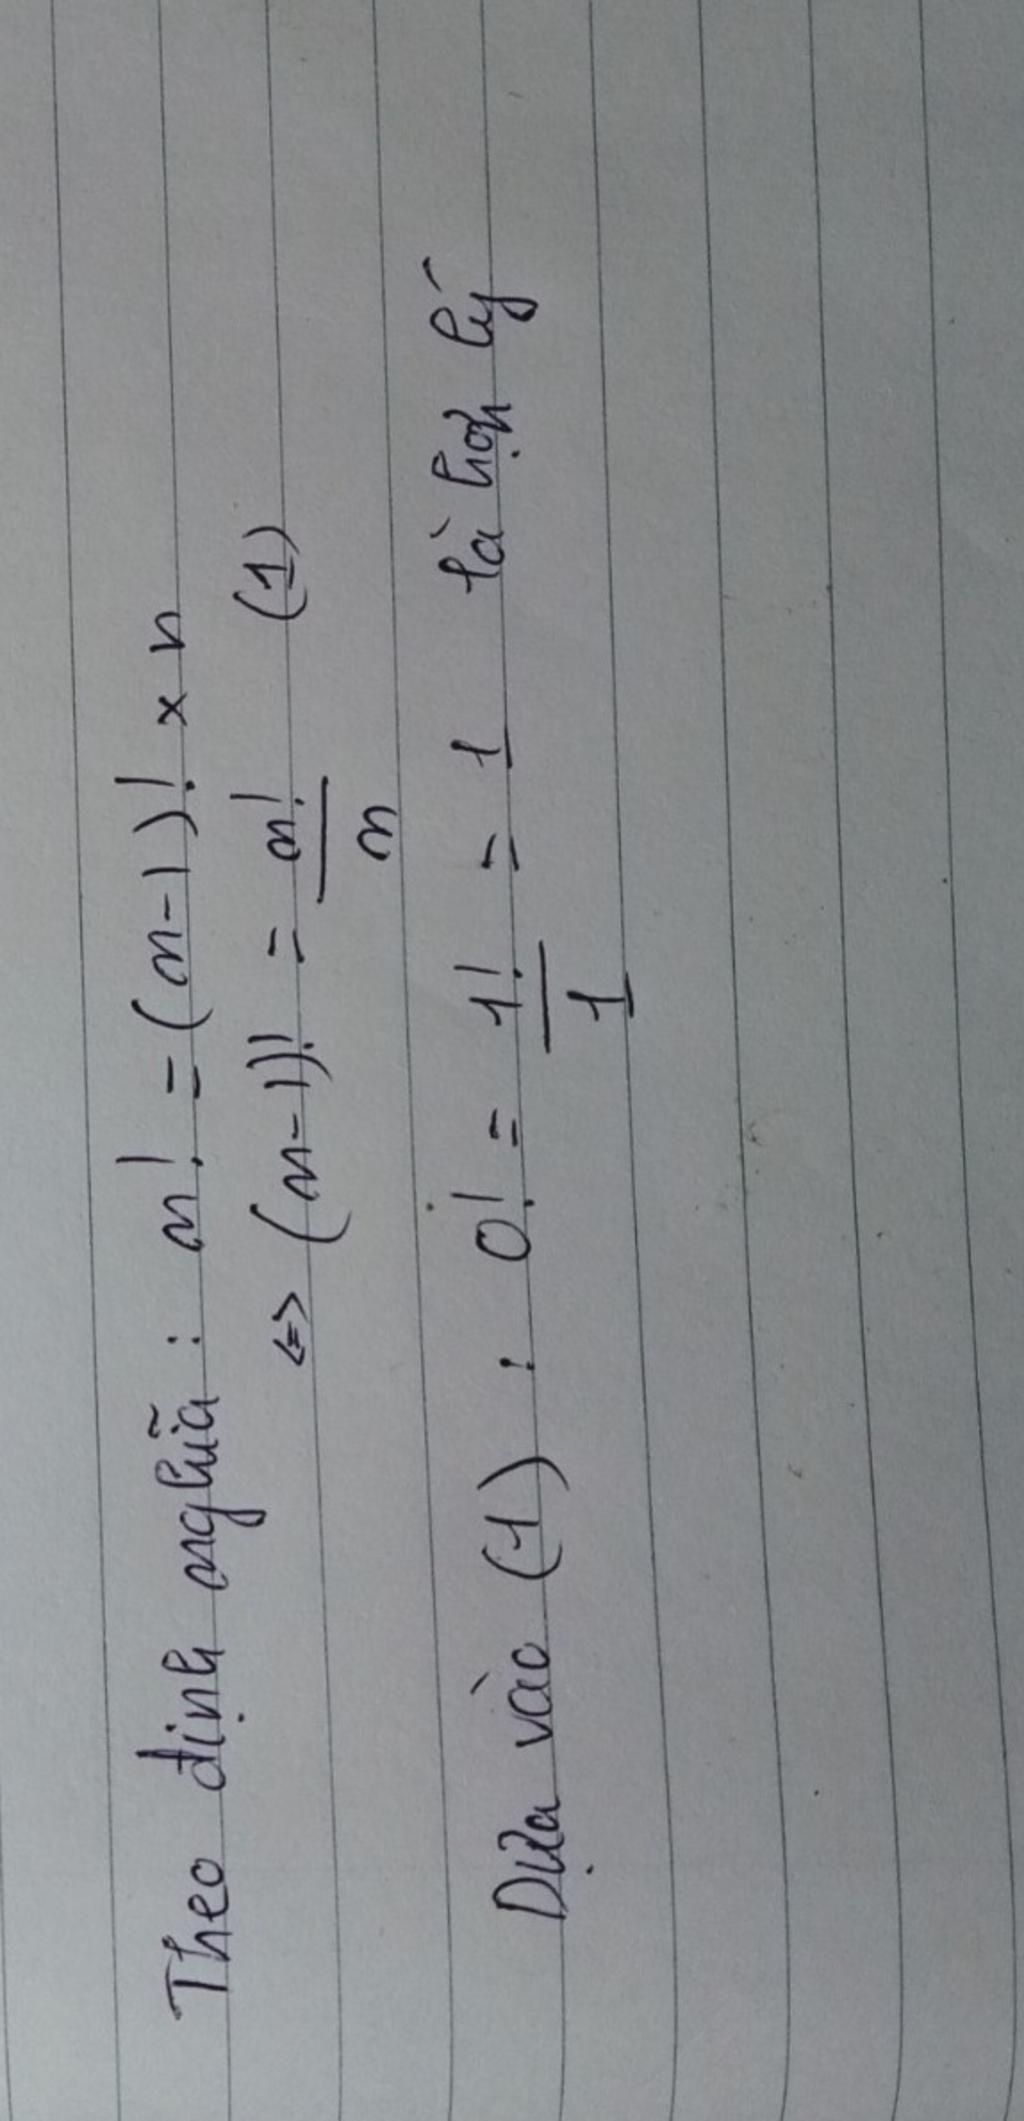 Theo định nghĩa : n! = (n-1)! x n
<=> (n-1)! = n!/n (1)
Dựa vào (1) : 0! = 1!/1 = 1 là hợp lý